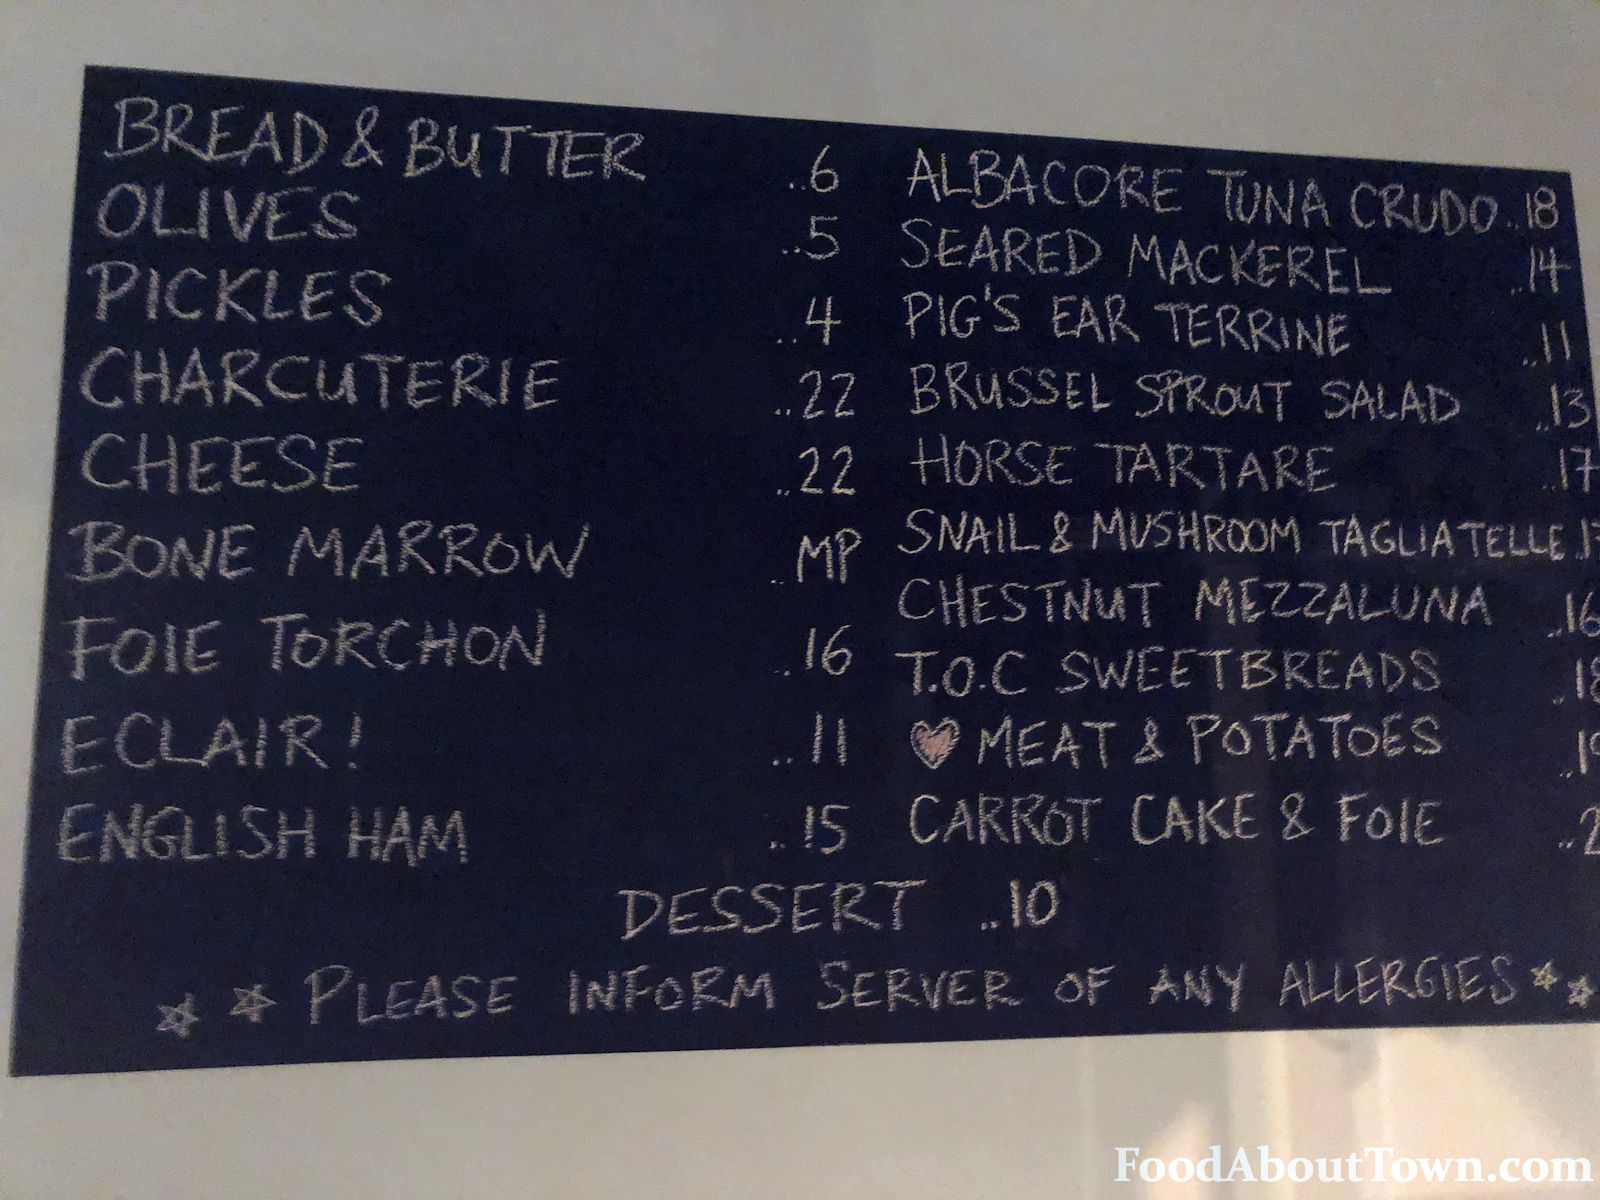 BREAD & BUTTER ..6
OLIVES ..5
PICKLES ..4
CHARCUTERIE ..22
CHEESE ..22
BONE MARROW ..MP
FOIE TORCHON ..16
ECLAIR! ..11
ENGLISH HAM ..15
ALBACORE TUNA CRUDO ..18
SEARED MACKEREL ..14
PIG'S EAR TERRINE ..11
BRUSSEL SPROUT SALAD ..13
HORSE TARTARE ..17
SNAIL & MUSHROOM TAGLIATELLE
CHESTNUT MEZZALUNA ..16
T.O.C SWEETBREADS ..18
MEAT & POTATOES
CARROT CAKE & FOIE
DESSERT ..10
PLEASE INFORM SERVER OF ANY ALLERGIES
FoodAboutTown.com